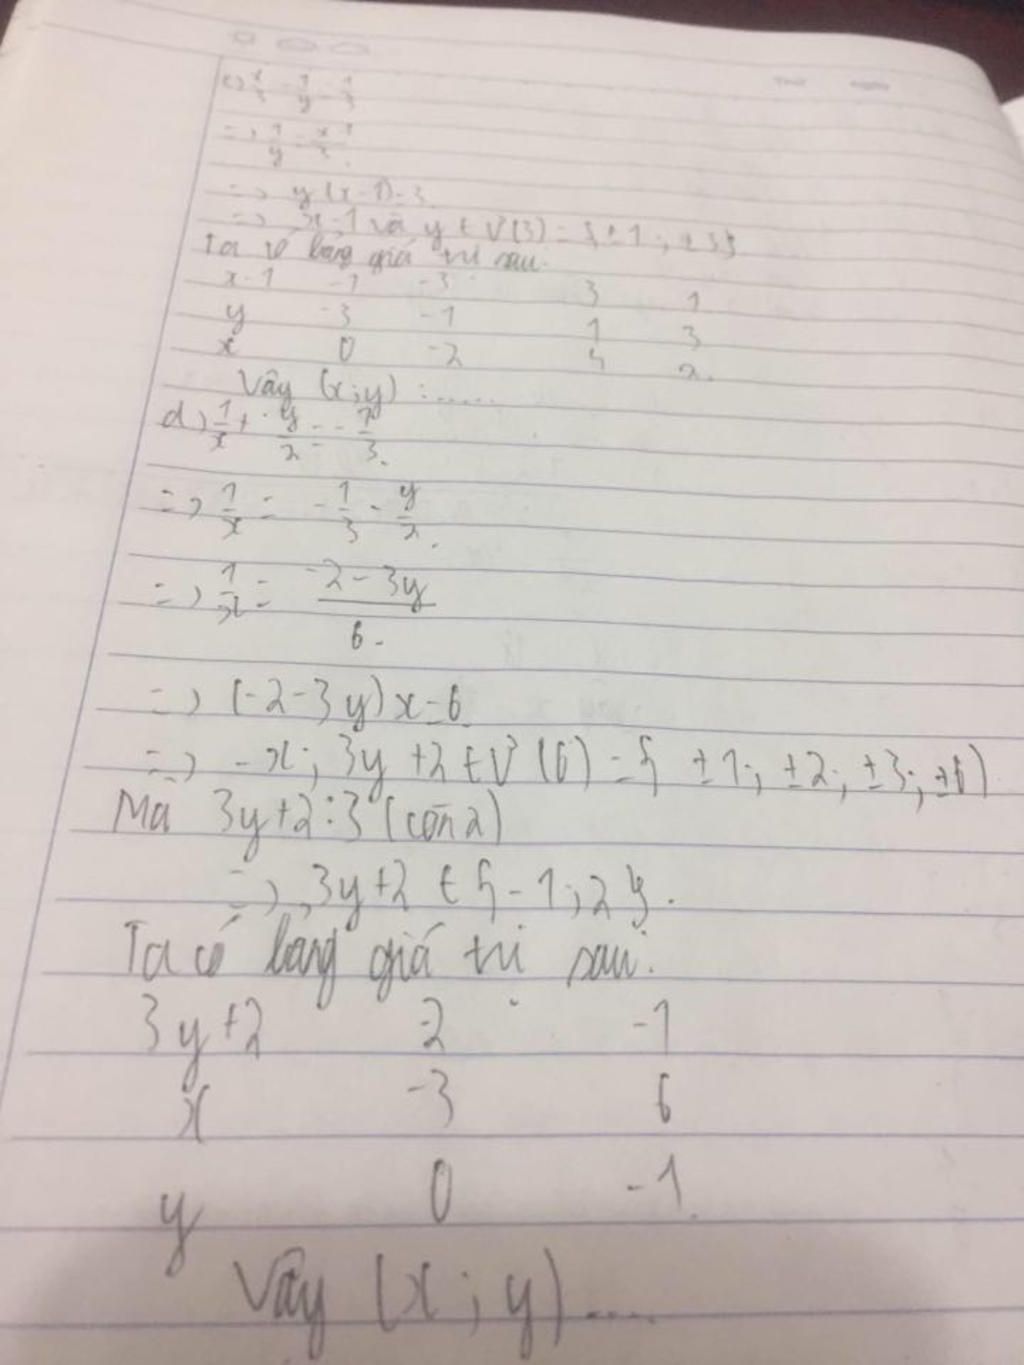 c) x/3 - 1/y = 1/3
=> 1/y = x-1/3
=> y(x-1)=3
=> x-1 và y ∈ Ư(3) = {±1; ±3}
Ta có bảng giá trị sau:
x-1 -1 -3 3 1
y -3 -1 1 3
x 0 -2 4 2.
Vậy (x;y) :.....
d) 1/x + y/2 = -1/3.
=> 1/x = -1/3 - y/2.
=> 1/x = -2-3y/6.
=> (-2-3y)x=6
=> -x; 3y+2 ∈ Ư(6) = { ±1; ±2; ±3; ±6}
Mà 3y+2:3 (còn 2)
=> 3y+2 ∈ {-1; 2}.
Ta có bảng giá trị sau:
3y+2 2 -1
x -3 6
y 0 -1
Vậy (x; y)....